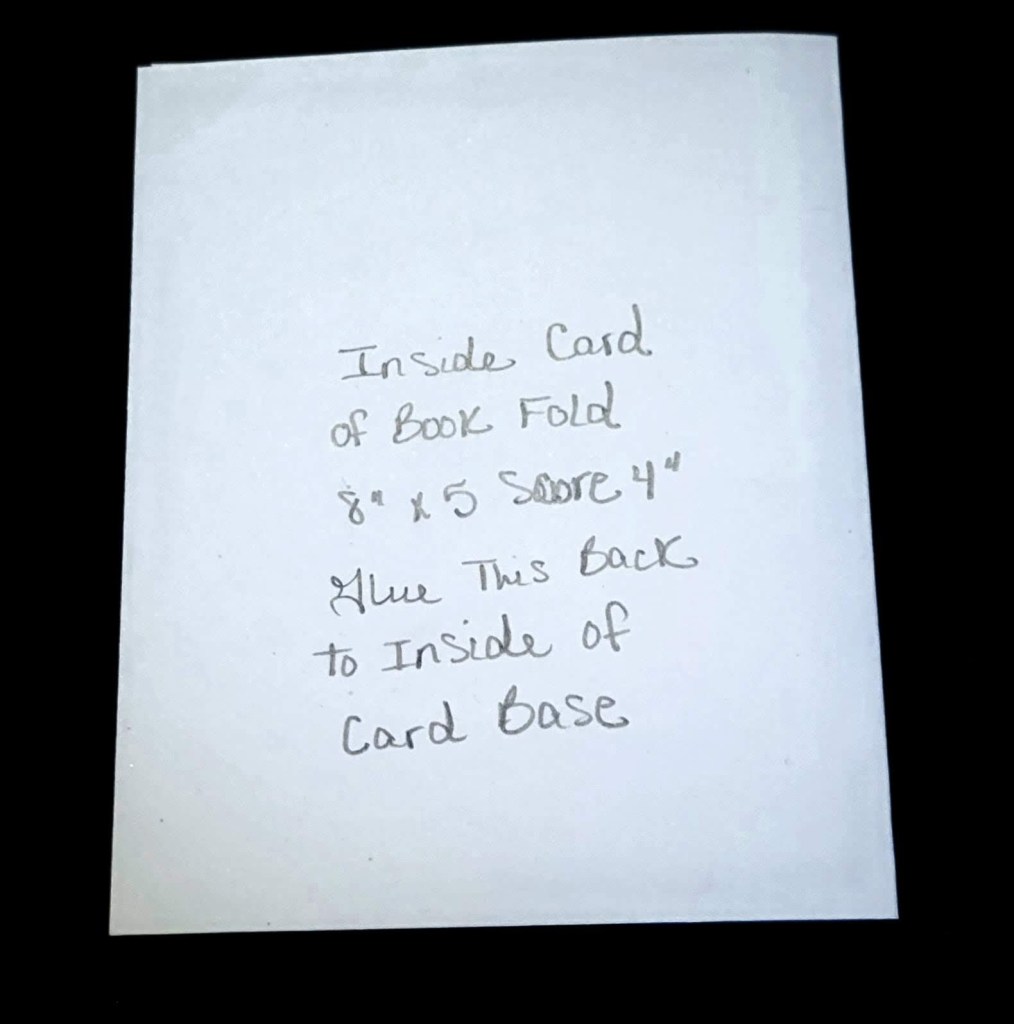 Inside Card
of Book Fold
8" x 5 Score 4"
Glue This Back
to Inside of
Card Base